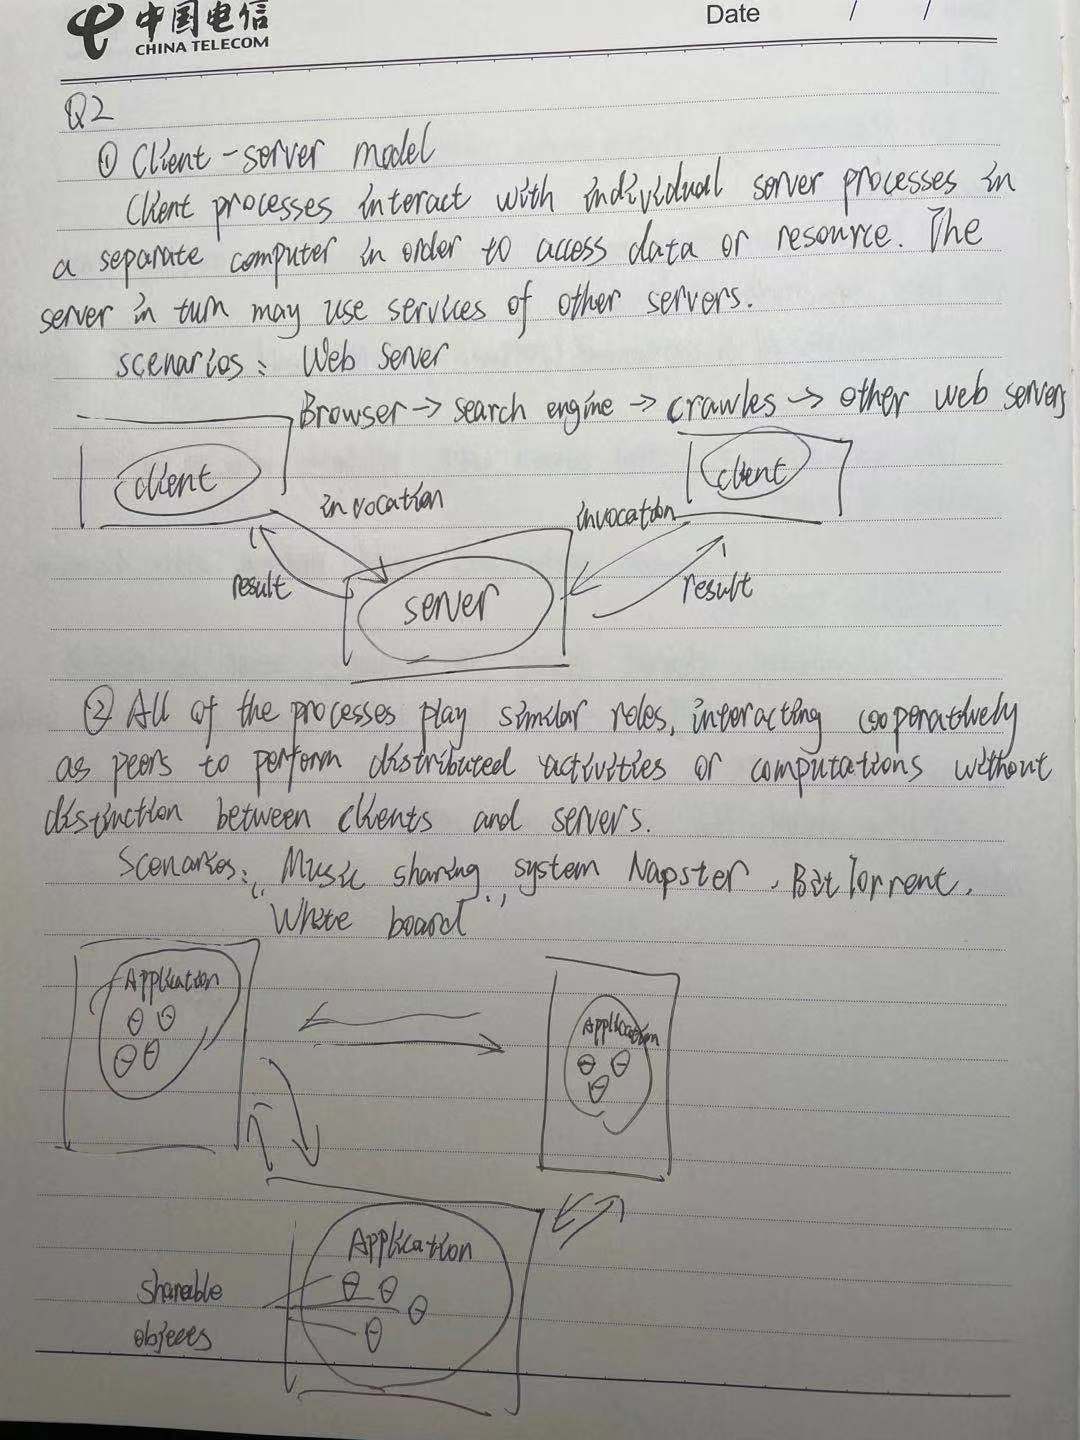 中国电信
CHINA TELECOM
Date / /
Q2
① Client-server model
Client processes interact with individual server processes in
a separate computer in order to access data or resource. The
server in turn may use services of other servers.
scenarios: Web Server
Browser → search engine → crawles → other web servers
client
client
invocation
invocation
result
server
result
② All of the processes play similar roles, interacting cooperatively
as peers to perform distributed activities or computations without
distinction between clients and servers.
Scenarios: Music sharing system Napster, BitTorrent,
"White board"
Application
Application
Application
Shareable
objects